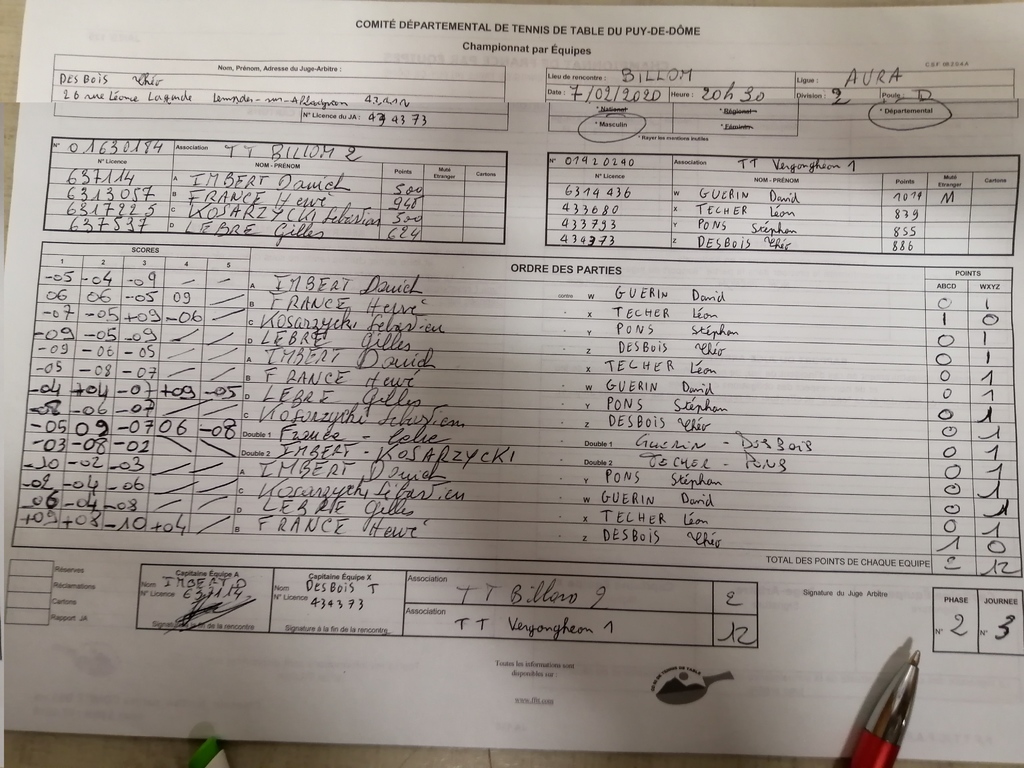 COMITÉ DÉPARTEMENTAL DE TENNIS DE TABLE DU PUY-DE-DÔME
Championnat par Équipes
Nom, Prénom, Adresse du Juge-Arbitre :
DESBOIS Théo
26 rue Léonce Lagarde Lempdes-sur-Allagnon
N° Licence du JA : 434373
Lieu de rencontre : BILLOM Ligue : AURA
Date : 7/02/2020 Heure : 20h30 Division : 2 Poule : D
* National * Régional * Départemental
* Masculin * Féminin
* Rayer les mentions inutiles
N° 01630184 Association TT BILLOM 2
N° Licence NOM - PRÉNOM Points Muté Etranger Cartons
637114 A IMBERT David 500
6313057 B FRANCE Hervé 948
6317225 C KOSARZYCKI Sébastien 500
637537 D LEBRE Gilles 624
N° 01420290 Association TT Vergongheon 1
N° Licence NOM - PRÉNOM Points Muté Etranger Cartons
6314436 W GUERIN David 1071 M
433680 X TECHER Léon 839
433793 Y PONS Stéphan 855
434373 Z DESBOIS Théo 886
SCORES ORDRE DES PARTIES POINTS
1 2 3 4 5 ABCD WXYZ
-05 -04 -09 A IMBERT David contre W GUERIN David 0 1
06 06 -05 09 B FRANCE Hervé X TECHER Léon 1 0
-07 -05 +09 -06 C Kosarzycki Sébastien Y PONS Stéphan 0 1
-09 -05 -09 D LEBRE Gilles Z DESBOIS Théo 0 1
-09 -06 -05 A IMBERT David X TECHER Léon 0 1
-05 -08 -07 B FRANCE Hervé W GUERIN David 0 1
-04 +04 -07 +09 -05 D LEBRE Gilles Y PONS Stéphan 0 1
-06 -07 C Kosarzycki Sébastien Z DESBOIS Théo 0 1
-05 09 -07 06 -08 Double 1 France - Lebre Double 1 GUERIN - DESBOIS 0 1
-03 -08 -02 Double 2 IMBERT - KOSARZYCKI Double 2 TECHER - PONS 0 1
-10 -02 -03 A IMBERT David Y PONS Stéphan 0 1
-02 -04 -06 C Kosarzycki Sébastien W GUERIN David 0 1
-06 -04 -08 D LEBRE Gilles X TECHER Léon 0 1
+09 +08 -10 +04 B FRANCE Hervé Z DESBOIS Théo 1 0
TOTAL DES POINTS DE CHAQUE EQUIPE 2 12
Réserves
Réclamations
Cartons
Rapport JA
Capitaine Équipe A
Nom IMBERT D
N° Licence 637114
Signature à la fin de la rencontre
Capitaine Équipe X
Nom DESBOIS T
N° Licence 434373
Signature à la fin de la rencontre
Association TT Billom 2 2
Association TT Vergongheon 1 12
Signature du Juge Arbitre
PHASE JOURNEE
N° 2 N° 3
Toutes les informations sont
disponibles sur :
www.fftt.com